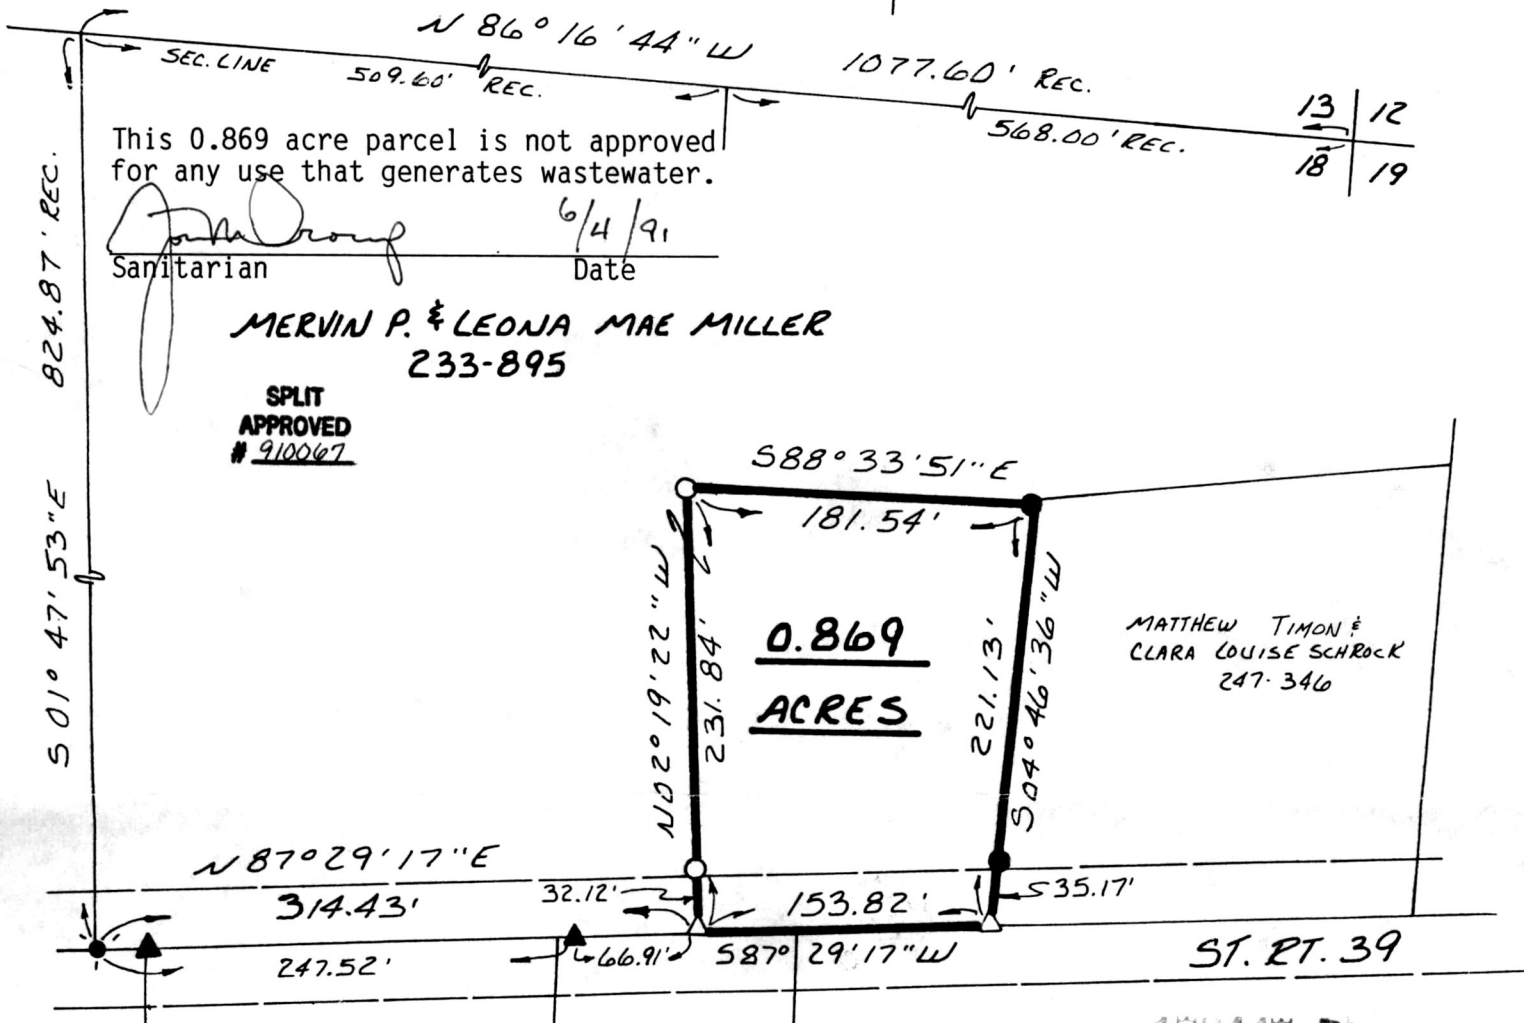 N 86° 16' 44" W
SEC. LINE
509.60' REC.
1077.60' REC.
568.00' REC.
13 12
18 19
This 0.869 acre parcel is not approved
for any use that generates wastewater.
6/4/91
Sanitarian Date
824.87' REC.
S 01° 47' 53" E
MERVIN P. & LEONA MAE MILLER
233-895
SPLIT
APPROVED
# 910067
S88° 33' 51" E
181.54'
N02° 19' 22" W
231.84'
0.869
ACRES
221.13'
S04° 46' 36" W
MATTHEW TIMON &
CLARA LOUISE SCHROCK
247-346
N 87° 29' 17" E
314.43'
32.12'
153.82'
35.17'
247.52'
66.91'
S87° 29' 17" W
ST. RT. 39